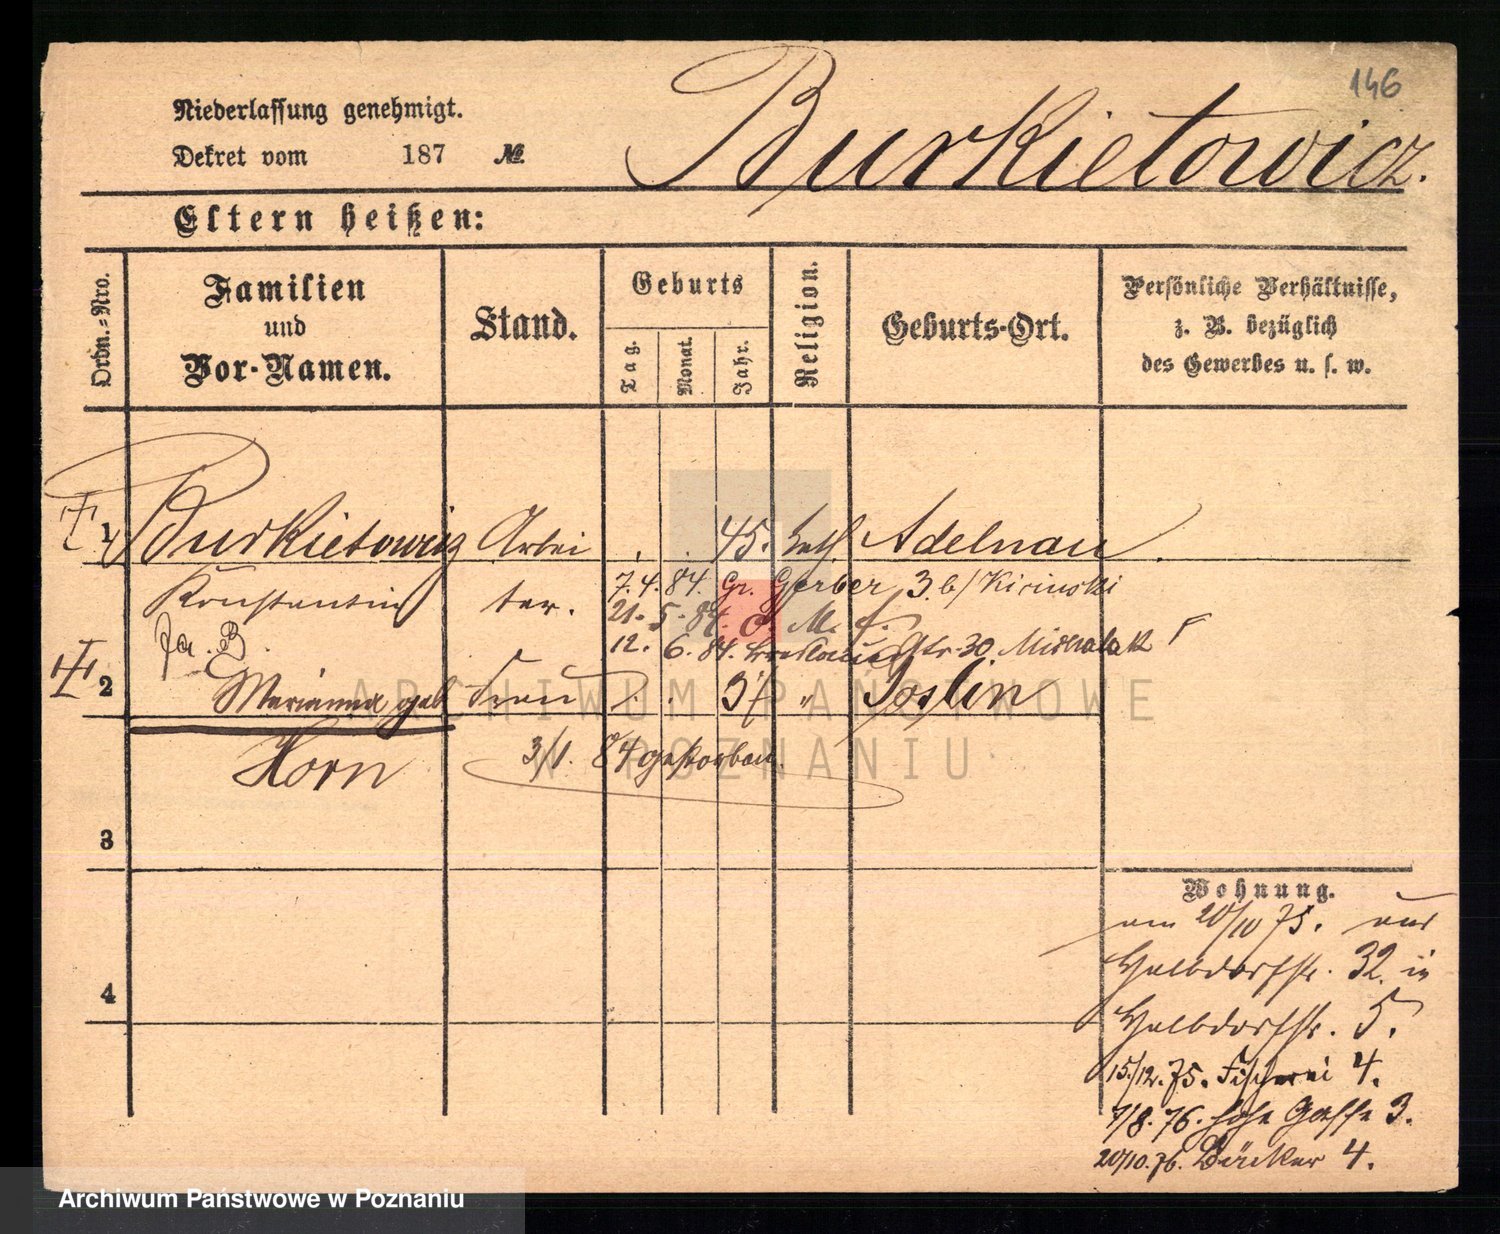 146
Niederlassung genehmigt.
Dekret vom 187 №
Burkietowicz.
Eltern heißen:
Ordn.-Nro.
Familien
und
Vor-Namen.
Stand.
Geburts
Tag.
Monat.
Jahr.
Religion.
Geburts-Ort.
Persönliche Verhältnisse,
z. B. bezüglich
des Gewerbes u. s. w.
1 Burkietowicz Arbei 45. kath Adelnau
Konstantin ter. 7.4.84. Gr. Gerber 3 b/ Kirinski
21. 5. 84.
12. 6. 84. Breslauer Str. 30. Michalak
2 Marianna geb Frau 37 " Joslin
Horn 3/1. 84 gestorben
3
4
Wohnung.
am 20/10 75. aus
Halbdorfstr. 32. in
Halbdorfstr. 5.
15/12. 75. Fischerei 4.
7/8. 76. hohe Gasse 3.
20/10. 76. Bäcker 4.
ARCHIWUM PAŃSTWOWE
W POZNANIU
Archiwum Państwowe w Poznaniu